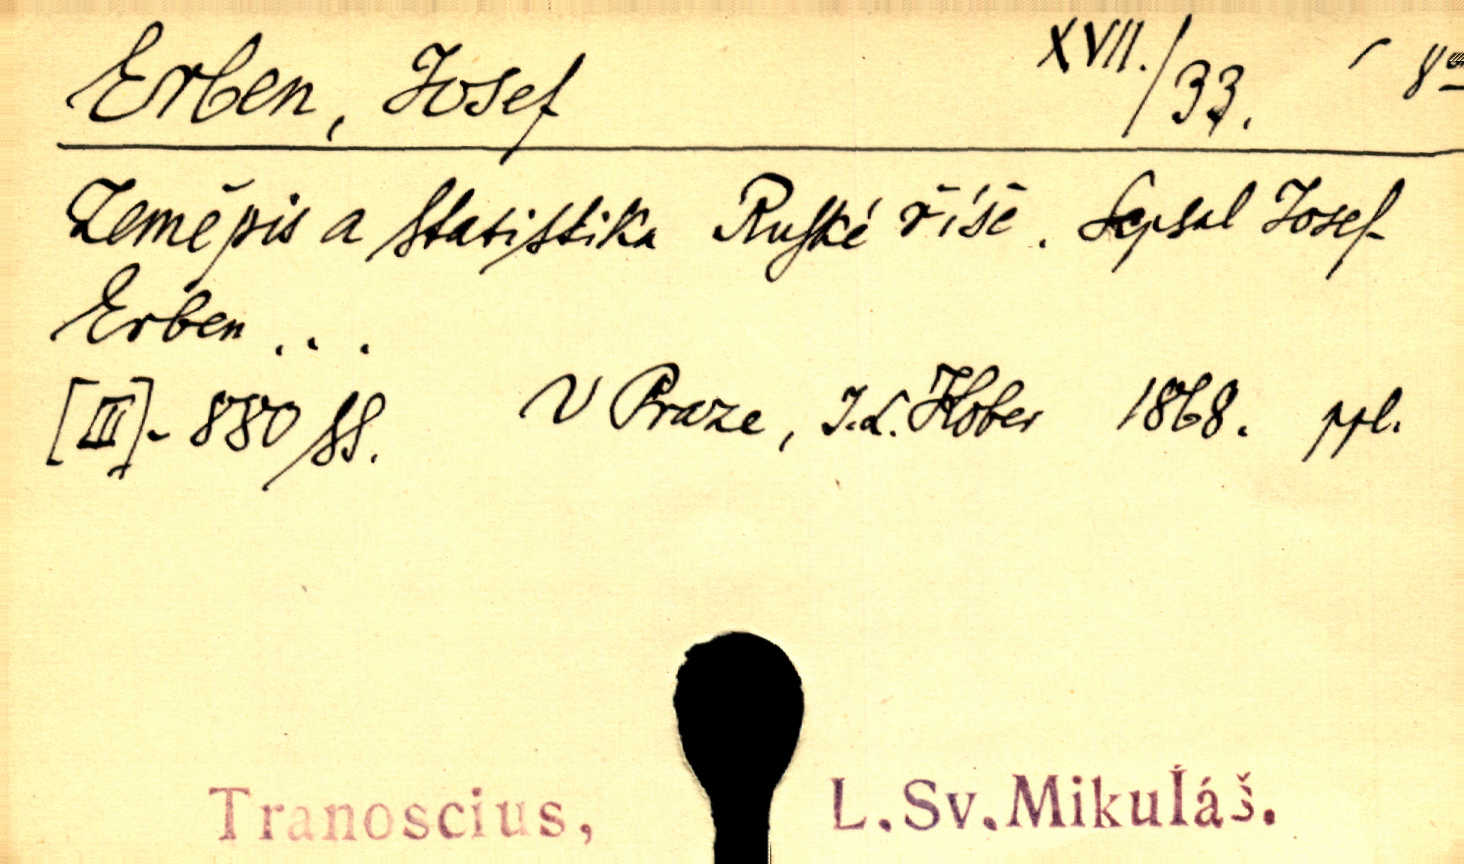 Erben, Josef XVII./33. 8°
Zeměpis a statistika Ruské říše. Sepsal Josef
Erben...
[III]-880 ss. V Praze, I.L. Kober 1868. ppl.
Tranoscius, L.Sv.Mikuĺáš.